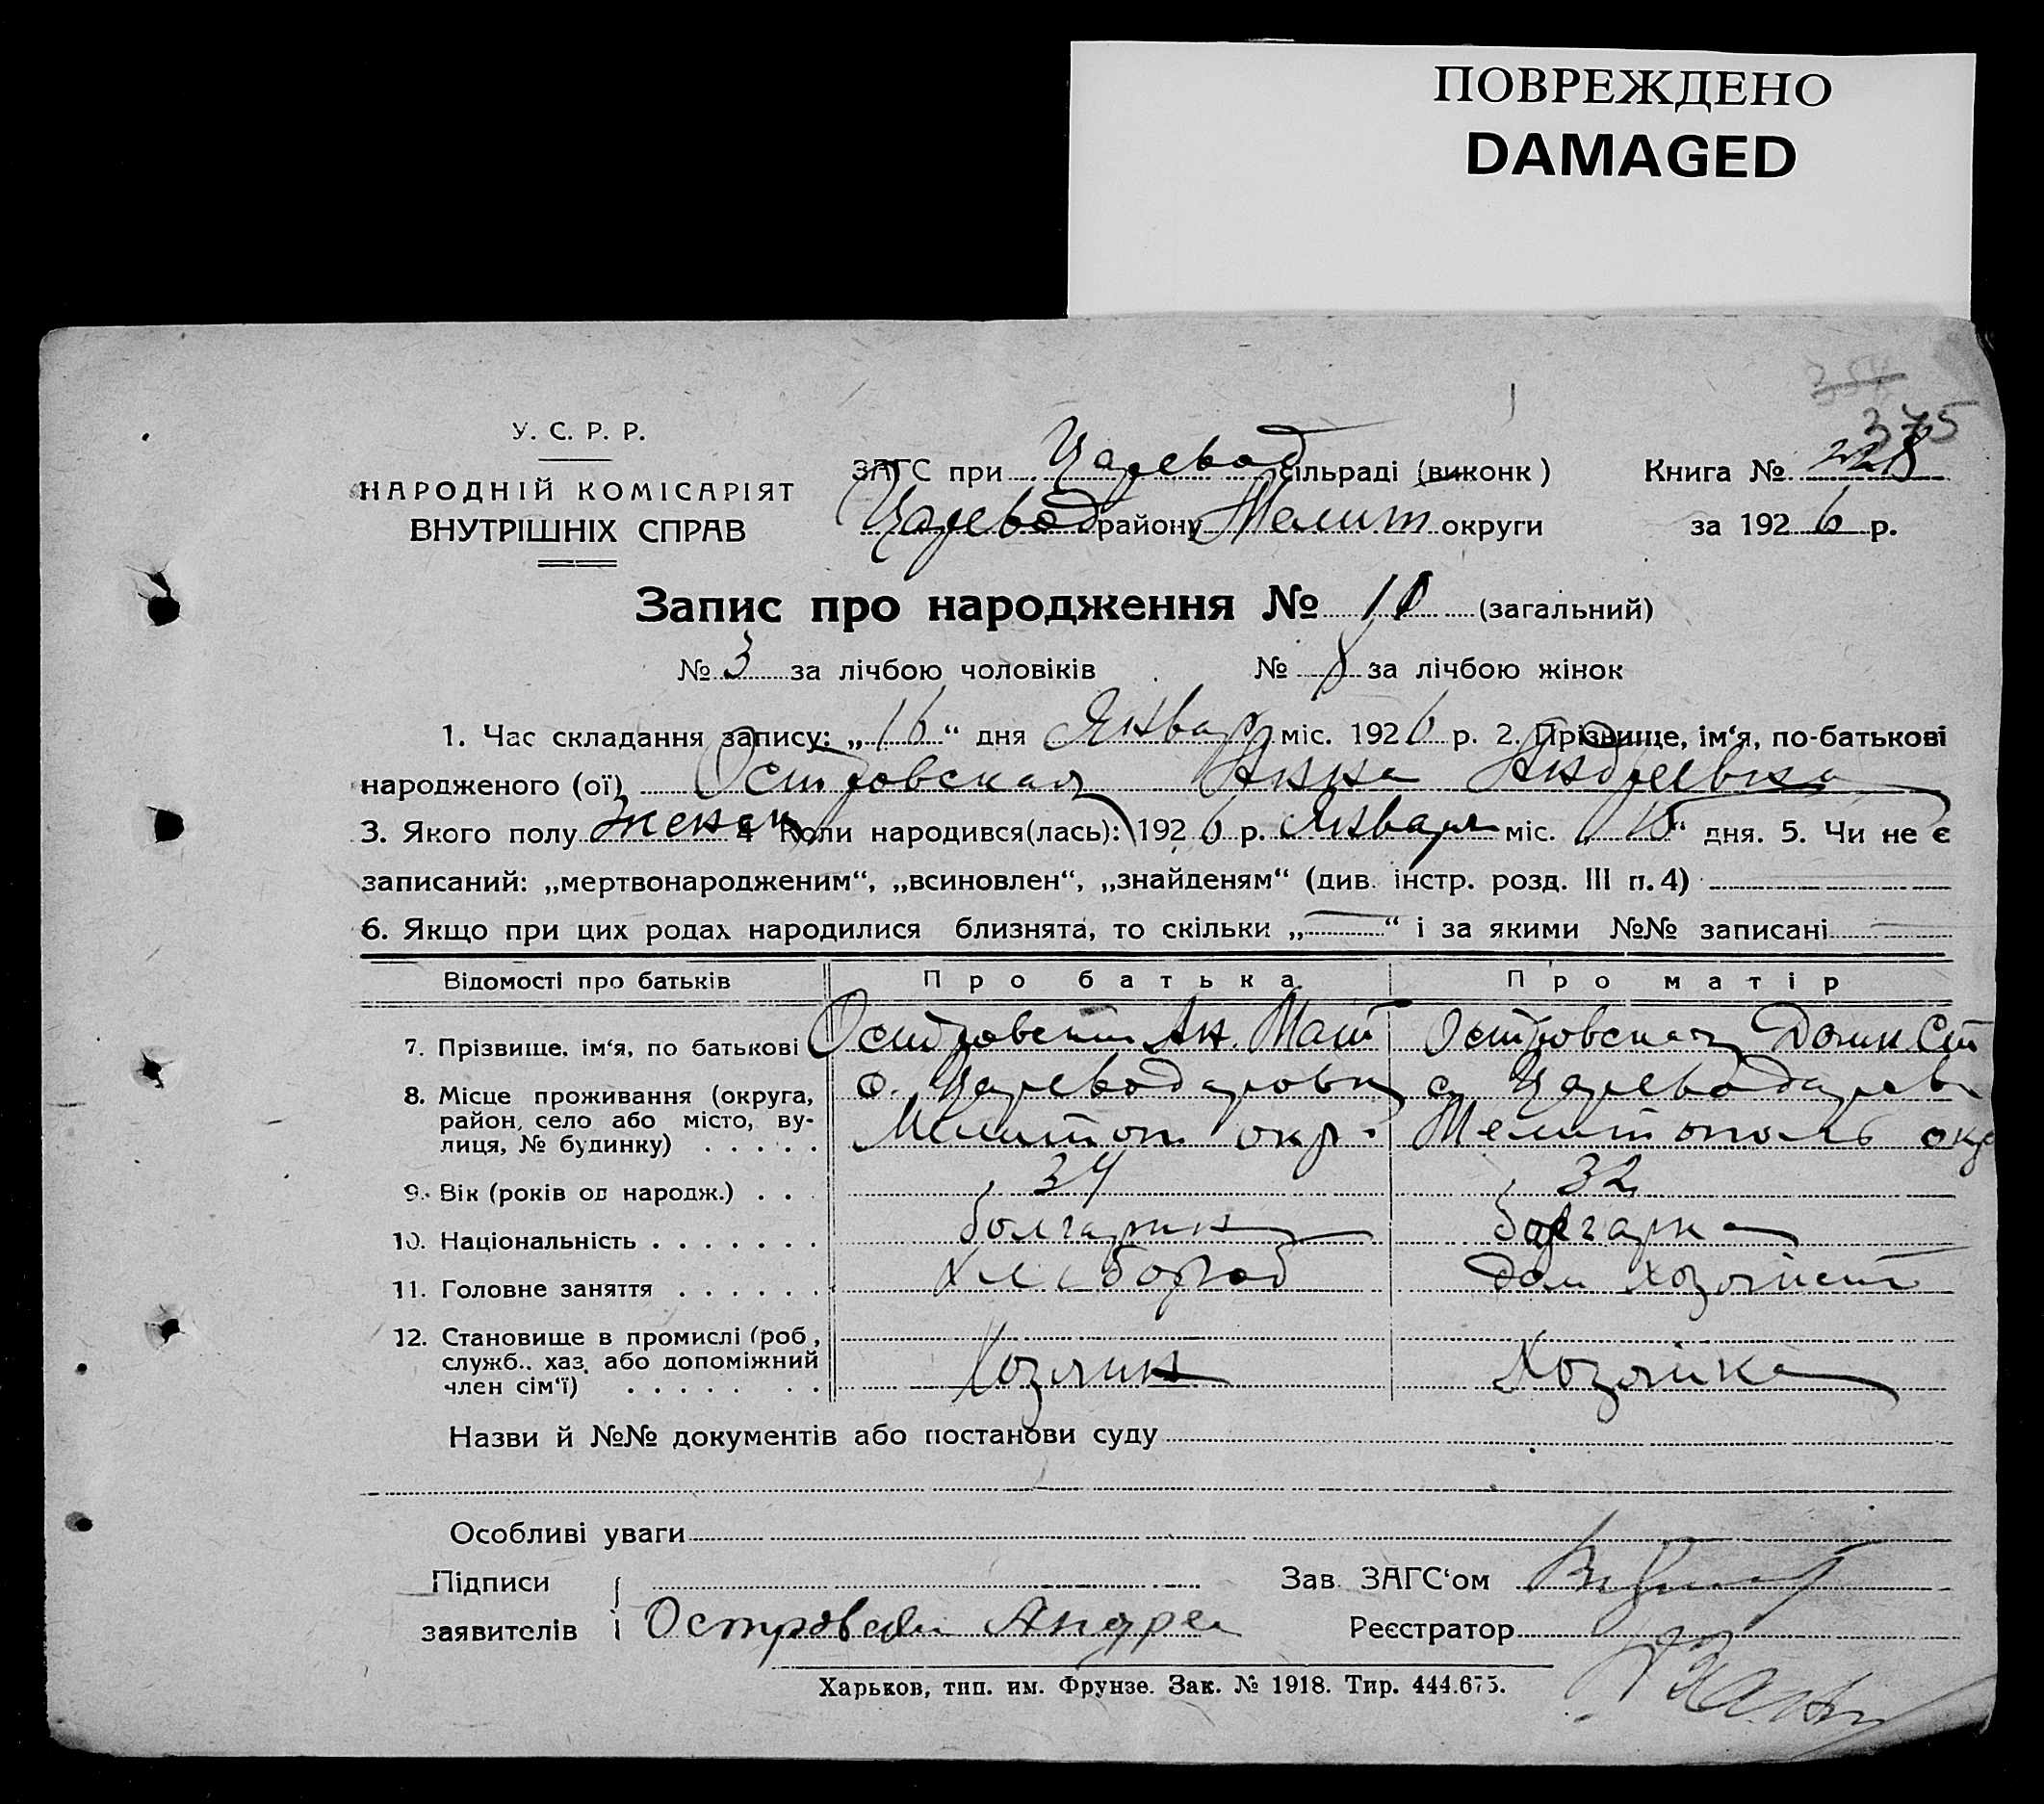 ПОВРЕЖДЕНО
DAMAGED
354
375
У. С. Р. Р.
НАРОДНІЙ КОМІСАРІЯТ
ВНУТРІШНІХ СПРАВ
ЗАГС при Царевод сільраді (виконк)
Книга № 228
Царевод району Мелит округи
за 1926 р.
Запис про народження № 10 (загальний)
№ 3 за лічбою чоловіків № 8 за лічбою жінок
1. Час складання запису: „16“ дня Январ міс. 1926 р. 2. Прізвище, ім‘я, по-батькові
народженого (ої) Островская Анна Андреевна
3. Якого полу Женск 4 Коли народився(лась): 1926 р. Января міс. „15“ дня. 5. Чи не є
записаний: „мертвонародженим“, „всиновлен“, „знайденям“ (див. інстр. розд. III п. 4)
6. Якщо при цих родах народилися близнята, то скільки „—“ і за якими №№ записані —
Відомості про батьків Про батька Про матір
7. Прізвище, ім‘я, по батькові Островский Ан. Мат Островская Домн Ст
8. Місце проживання (округа, с. Цареводаровк с. Цареводаров
район, село або місто, ву-
лиця, № будинку) . . . . . Мелитоп окр. Мелитополь окр
9. Вік (років од народж.) . . . 34 32
10. Національність . . . . . . . болгарин болгарка
11. Головне заняття . . . . . . Хлебороб Дом хозяйст
12. Становище в промислі (роб.,
служб., хаз. або допоміжний
член сім‘ї) . . . . . . . Хозяин Хозяйка
Назви й №№ документів або постанови суду
Особливі уваги
Підписи Зав. ЗАГС‘ом
заявителів Островский Андрей Реєстратор
Харьков, тип. им. Фрунзе. Зак. № 1918. Тир. 444.675.